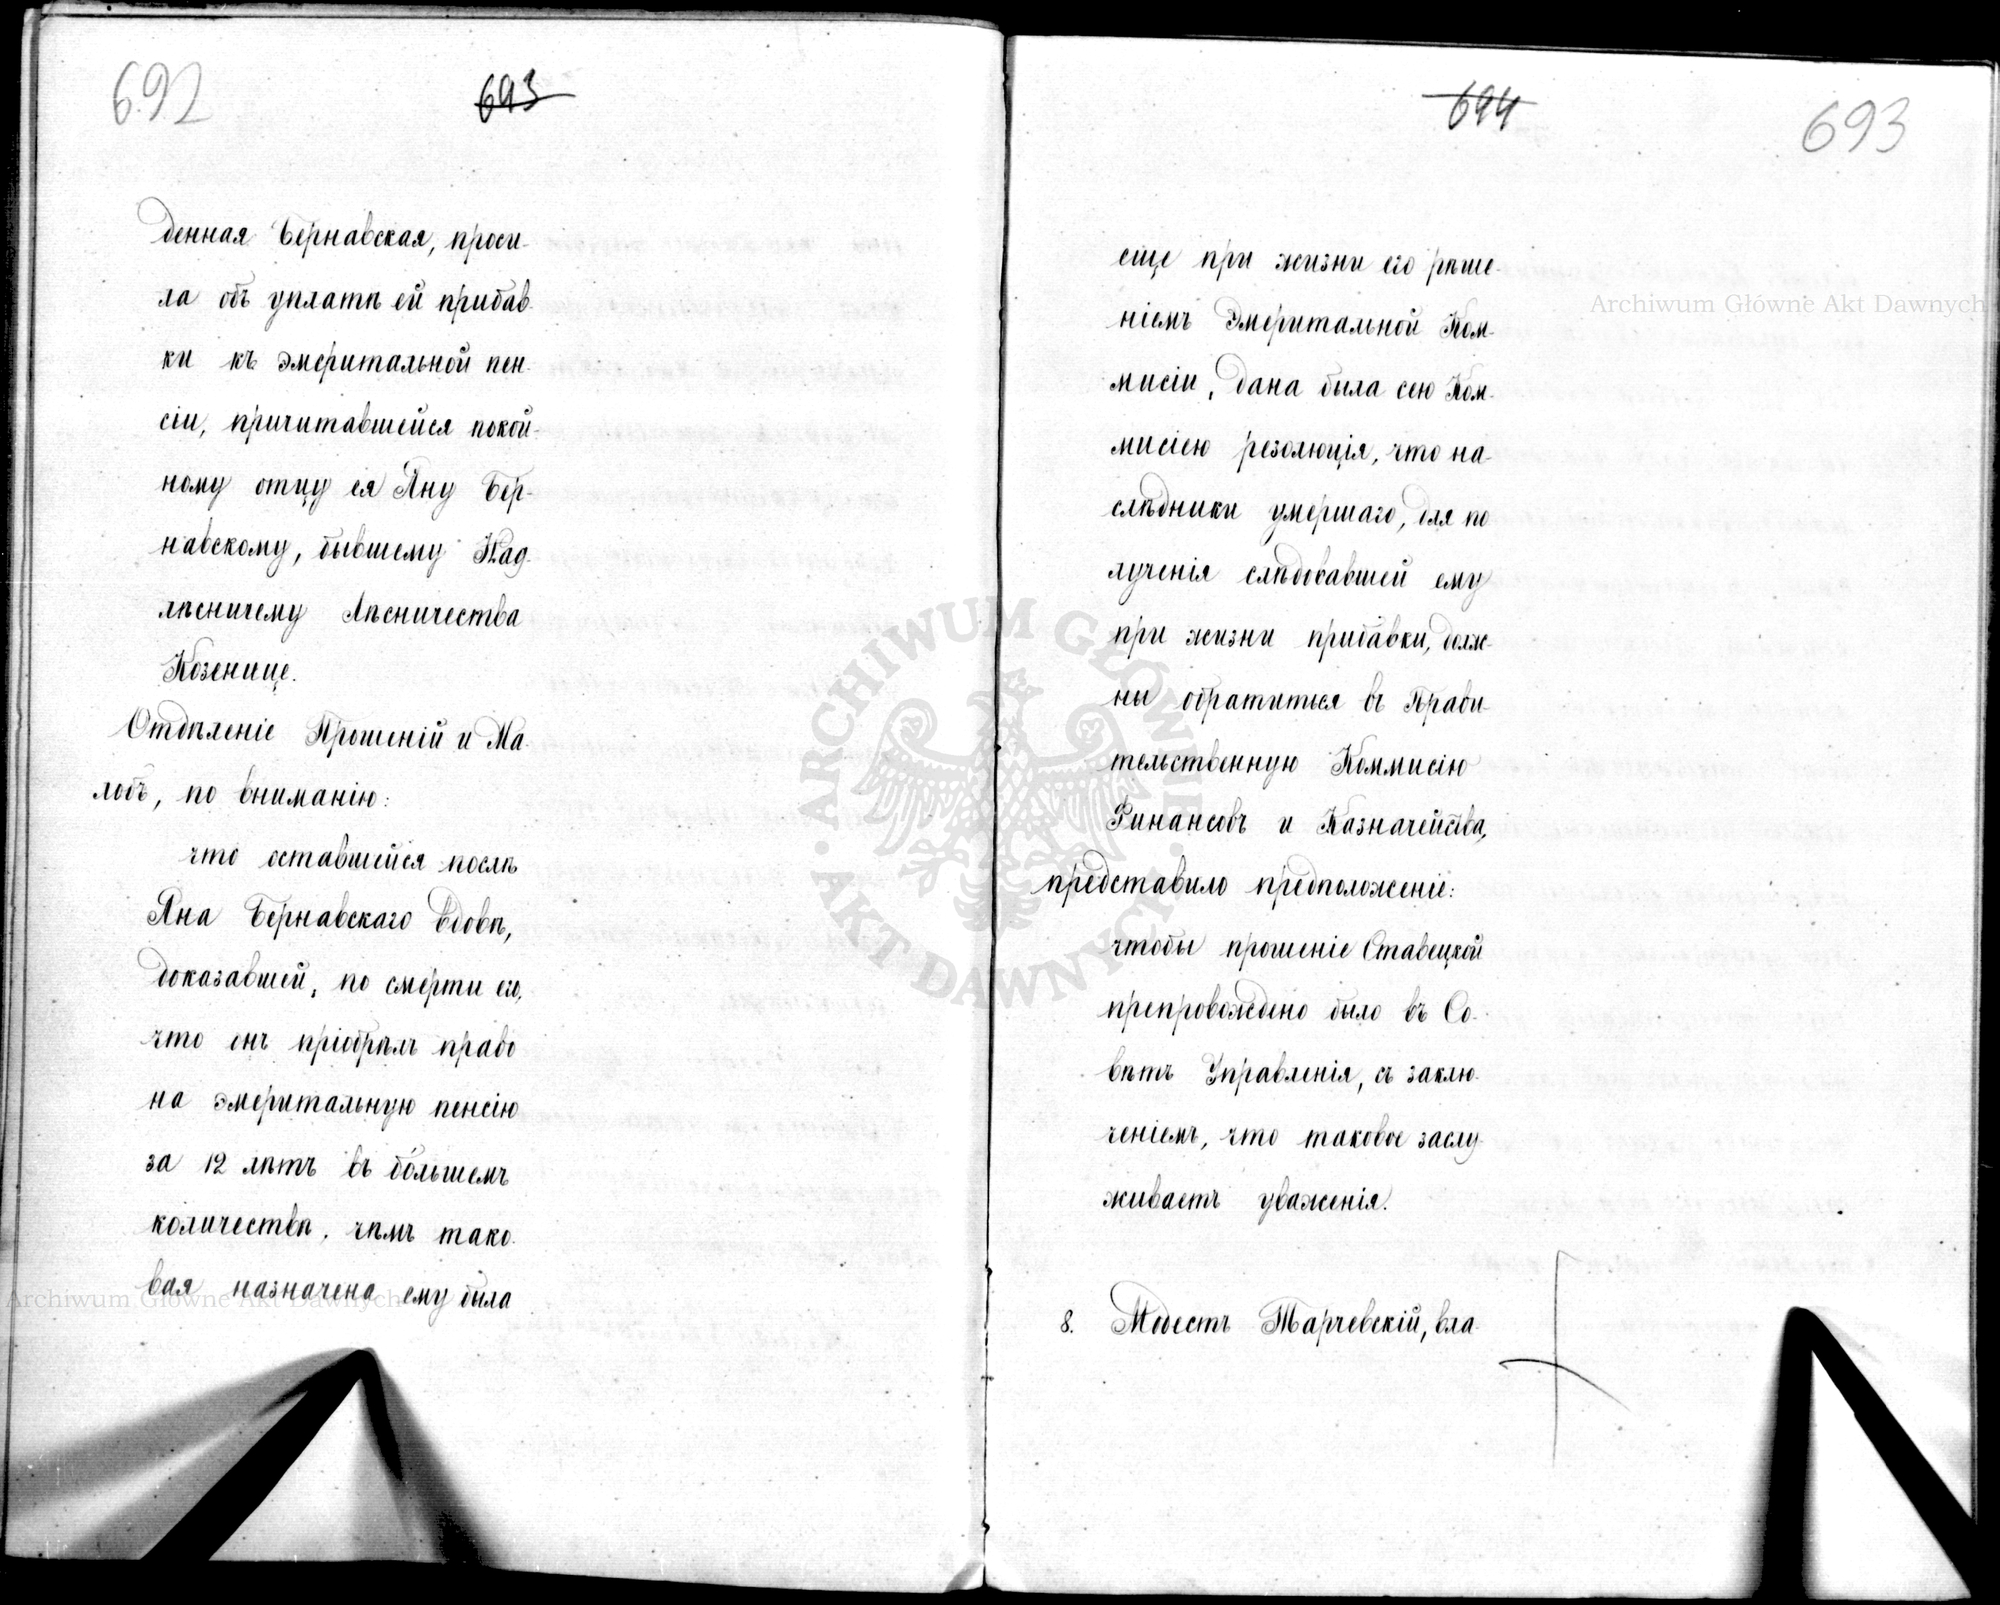 692
693
денная Бернавская, проси-
ла объ уплатѣ ей прибав-
ки къ эмеритальной пен-
сіи, причитавшейся покой-
ному отцу ея Яну Бер-
навскому, бывшему Над-
лѣсничему Лѣсничества
Козенице.
Отдѣленіе Прошеній и Жа-
лобъ, по вниманію:
что оставшейся послѣ
Яна Бернавскаго Вдовѣ,
доказавшей, по смерти его,
что онъ пріобрѣлъ право
на эмеритальную пенсію
за 12 лѣтъ въ бо́льшемъ
количествѣ, чѣмъ тако-
вая назначена ему была
694
693
еще при жизни его рѣше-
ніемъ Эмеритальной Ком-
мисіи, дана была сею Ком-
мисіею резолюція, что на-
слѣдники умершаго, для по
лученія слѣдовавшей ему
при жизни прибавки, долж-
ны обратиться въ Прави-
тельственную Коммисію
Финансовъ и Казначейства,
представило предположеніе:
чтобы прошеніе Ставецкой
препровождено было въ Со-
вѣтъ Управленія, съ заклю-
ченіемъ, что таковое заслу-
живаетъ уваженія.
8. Модестъ Тарчевскій, вла-
Archiwum Główne Akt Dawnych
Archiwum Główne Akt Dawnych
ARCHIWUM GŁÓWNE AKT DAWNYCH